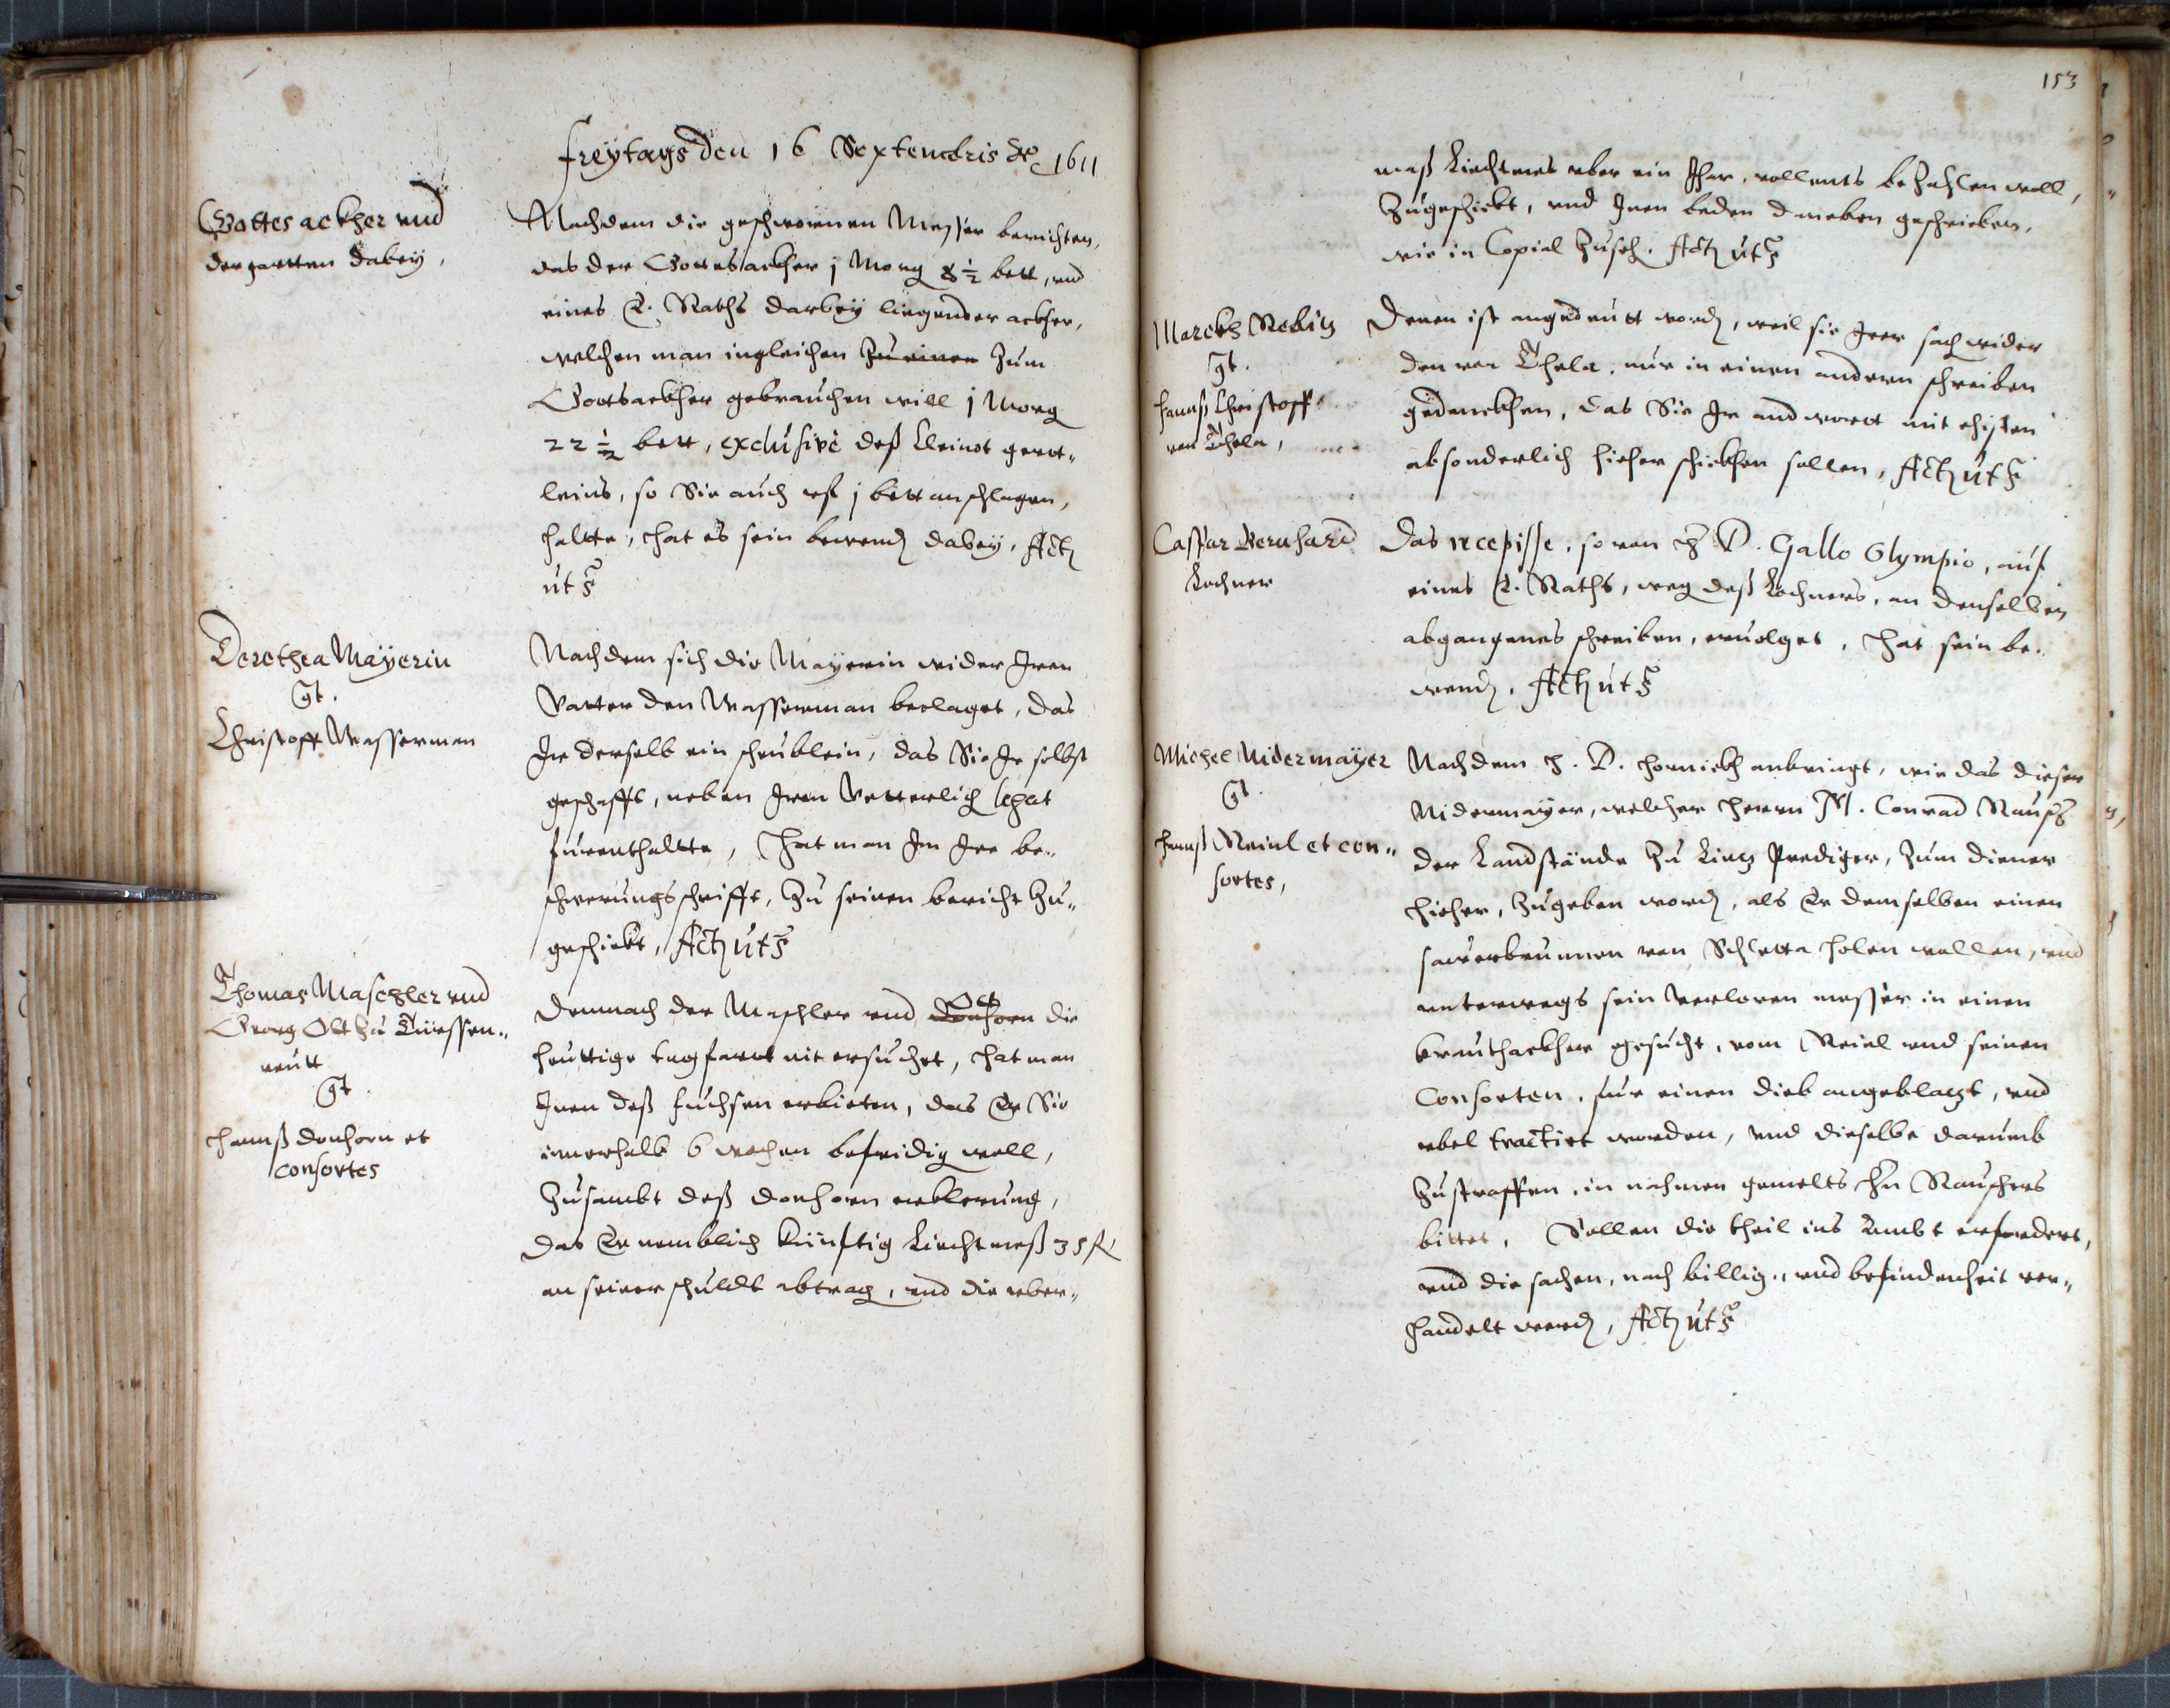 Freÿtags den 16 Septembris Ao 1611
Gottes ackher vnd
der gartten dabeÿ,
Nachdem die geschwornen Messer berichten,
das der Gottesackher j Morg 8 1/2 bett, vnd
eines E. Raths darbeÿ ligender ackher,
welchen man ingleichen zu einen zum
Gottsackher gebrauchen will j Morg
22 1/2 bett, exclusivè deß kleinot gertt„
leins, so Sie auch vf j bett anschlagen,
haltte, hat es sein bewend dabeÿ, Act
ut s
Dorothea Maÿerin
gt.
Christoff Wasserman
Nachdem sich die Maÿerin wider Iren
Vatter den Wasserman beclaget, das
Ir derselb ein scheublein, das Sie Ir selbst
geschafft, neben Irem Vetterlich
furenthaltte, hat man Im Ire be„
schwerungs schrifft, zu seinen bericht zu„
geschickt, Act ut s
Thomas Maschler vnd
Georg Ott zu
reutt
gt.
Hannß Donhorn et
consortes
Demnach der Maschler vnd Donhorn Ott die
heuttige tagfartt nit ersuchet, hat man
Inen deß Fuchsen erbieten, das Er Sie
innerhalb 6 wochen befridig woll,
zusambt deß Donhorn erklerung,
das Er nemblich künftig Liechtmeß 35 fl
an seiner schuldt abtrag, vnd die vber„
153
maß Liechtmes vber ein Jhar, vollents bezahlen woll,
zugeschickt, vnd Inen beden daneben geschrieben,
wie in Copial zuseh. Act ut s
Marckh Rebitz
gt.
Hannß Christoff
von Thela,
Denen ist angedeutt word, weil sie Irer sach wider
den von Thela, nur in einen andern schreiben
gedenckhen, das Sie Ir andwortt mit ehisten
absonderlich hieher schickhen sollen, Act ut s
Casspar Bernhard
Lochner
Das recepisse, so von H D. Gallo Olympio, auf
eines E. Raths, weg deß Lochners, an denselben
abgangenes schreiben, ervolget, hat sein be„
wend, Act ut s
Michel Nidermaÿer
gt.
Hannß Meinl et con„
sortes,
Nachdem H. D. Hornickh anbringt, wie das dieser
Nidermaÿer, welcher Herrn M. Conrad Rausch
der Landstände zu Lintz Prediger, zum diener
hieher, zugeben word, als Er demselben einen
sauerbrunnen von Schletta holen wollen, vnd
vnterwegs sein verloren messer in einen
krauthackher gesucht, vom Meinl vnd seinen
Consorten, fur einen dieb angeklagt, vnd
vbel tractirt worden, vnd dieselbe darumb
zustraffen, in nahmen gemelts Hn Rauschens
bittet, Sollen die theil ins Ambt erfordert,
vnd die sachen, nach billig„ vnd befindenheit ver„
handelt werd, Act ut s